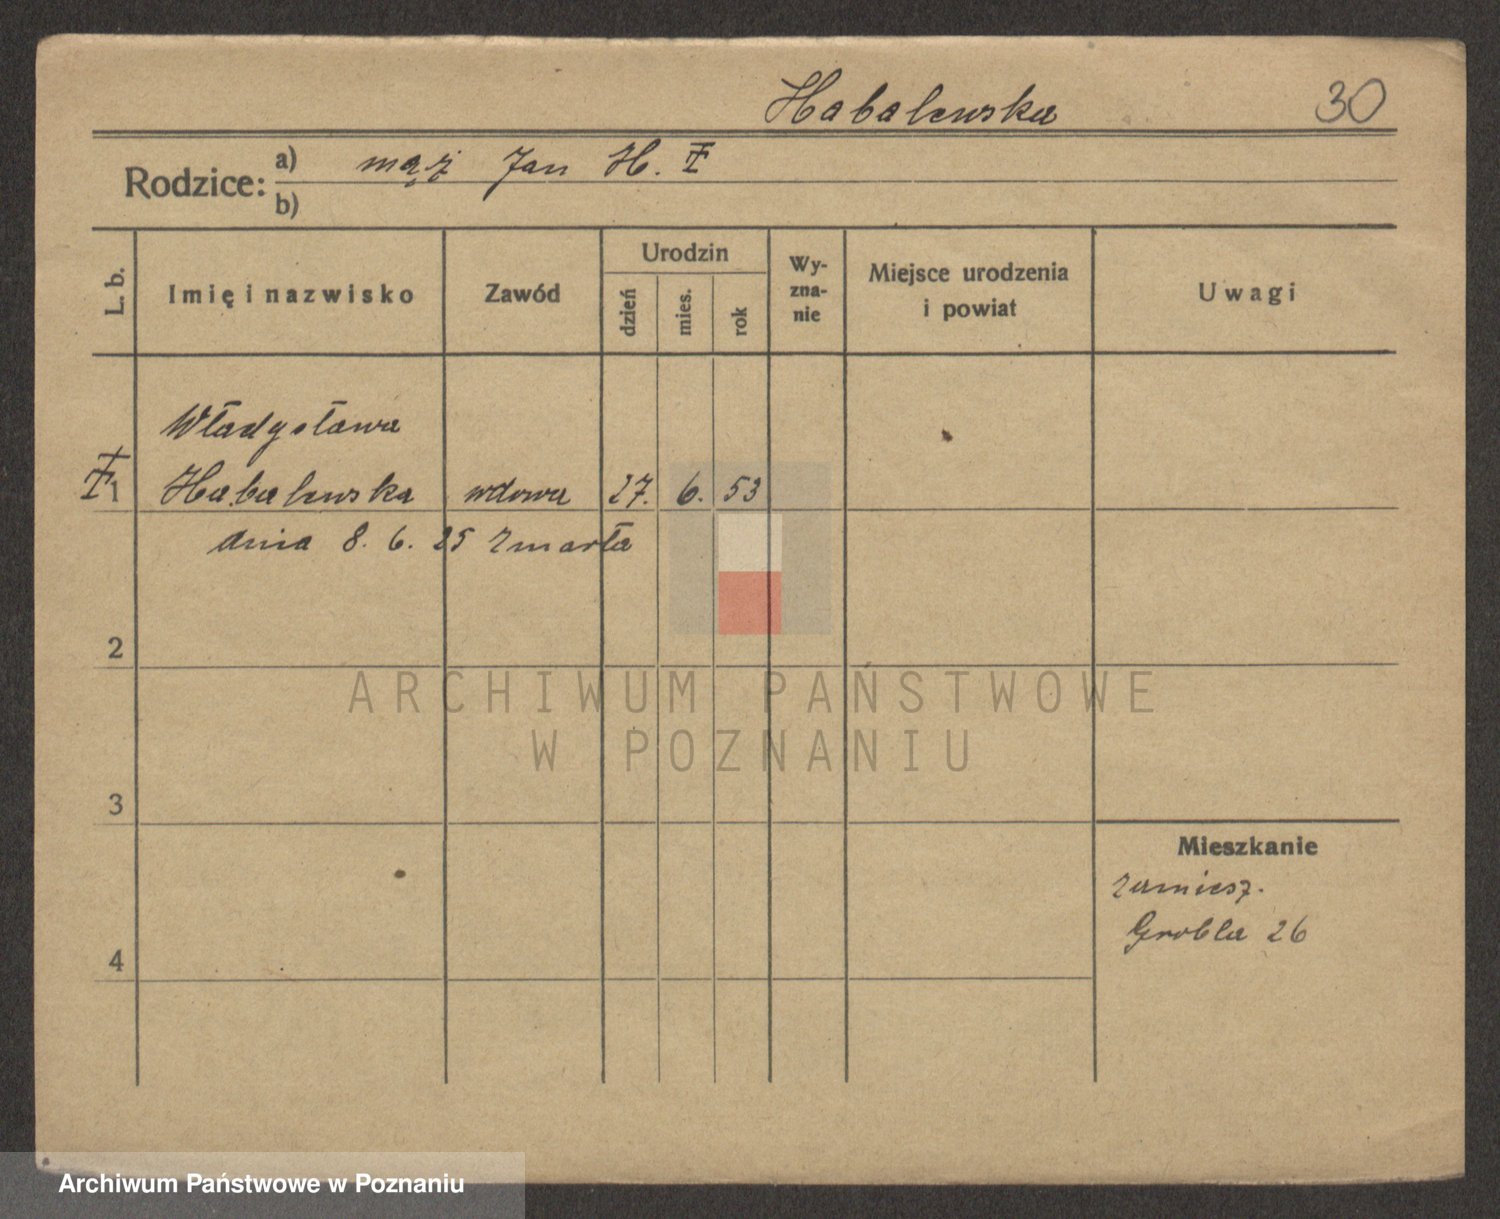 Habalewska
30
Rodzice:
a) mąż Jan H. ‡
b)
L. b.
Imię i nazwisko
Zawód
Urodzin
dzień
mies.
rok
Wy-
zna-
nie
Miejsce urodzenia
i powiat
Uwagi
Władysława
‡ 1 Habalewska wdowa 27. 6. 53
dnia 8. 6. 25 zmarła
2
ARCHIWUM PAŃSTWOWE
W POZNANIU
3
Mieszkanie
zamiesz.
Grobla 26
4
Archiwum Państwowe w Poznaniu